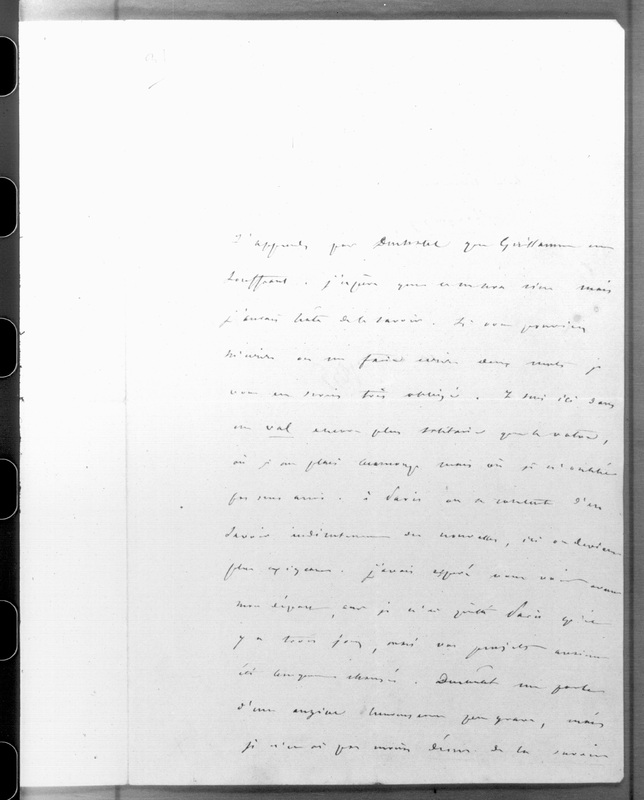 J'apprends par Duchatel que Guillaume est
souffrant. J'espère que ce ne sera rien mais
j'aurais hâte de le savoir. Si vous pouviez
m'écrire ou me faire écrire deux mots je
vous en serais très obligé. Je suis ici dans
un val encore plus solitaire que le votre,
où je me plais beaucoup mais où je n'oublie
pas mes amis. à Paris on se contente d'en
savoir indirectement des nouvelles, ici on devient
plus exigeant. J'avais espéré vous voir avant
mon départ, car je n'ai quitté Paris qu'il
y a trois jours, mais vos projets avaient
été changés. Duchatel me parle
d'une angine heureusement peu grave, mais
je n'en ai pas moins désir de la savoir